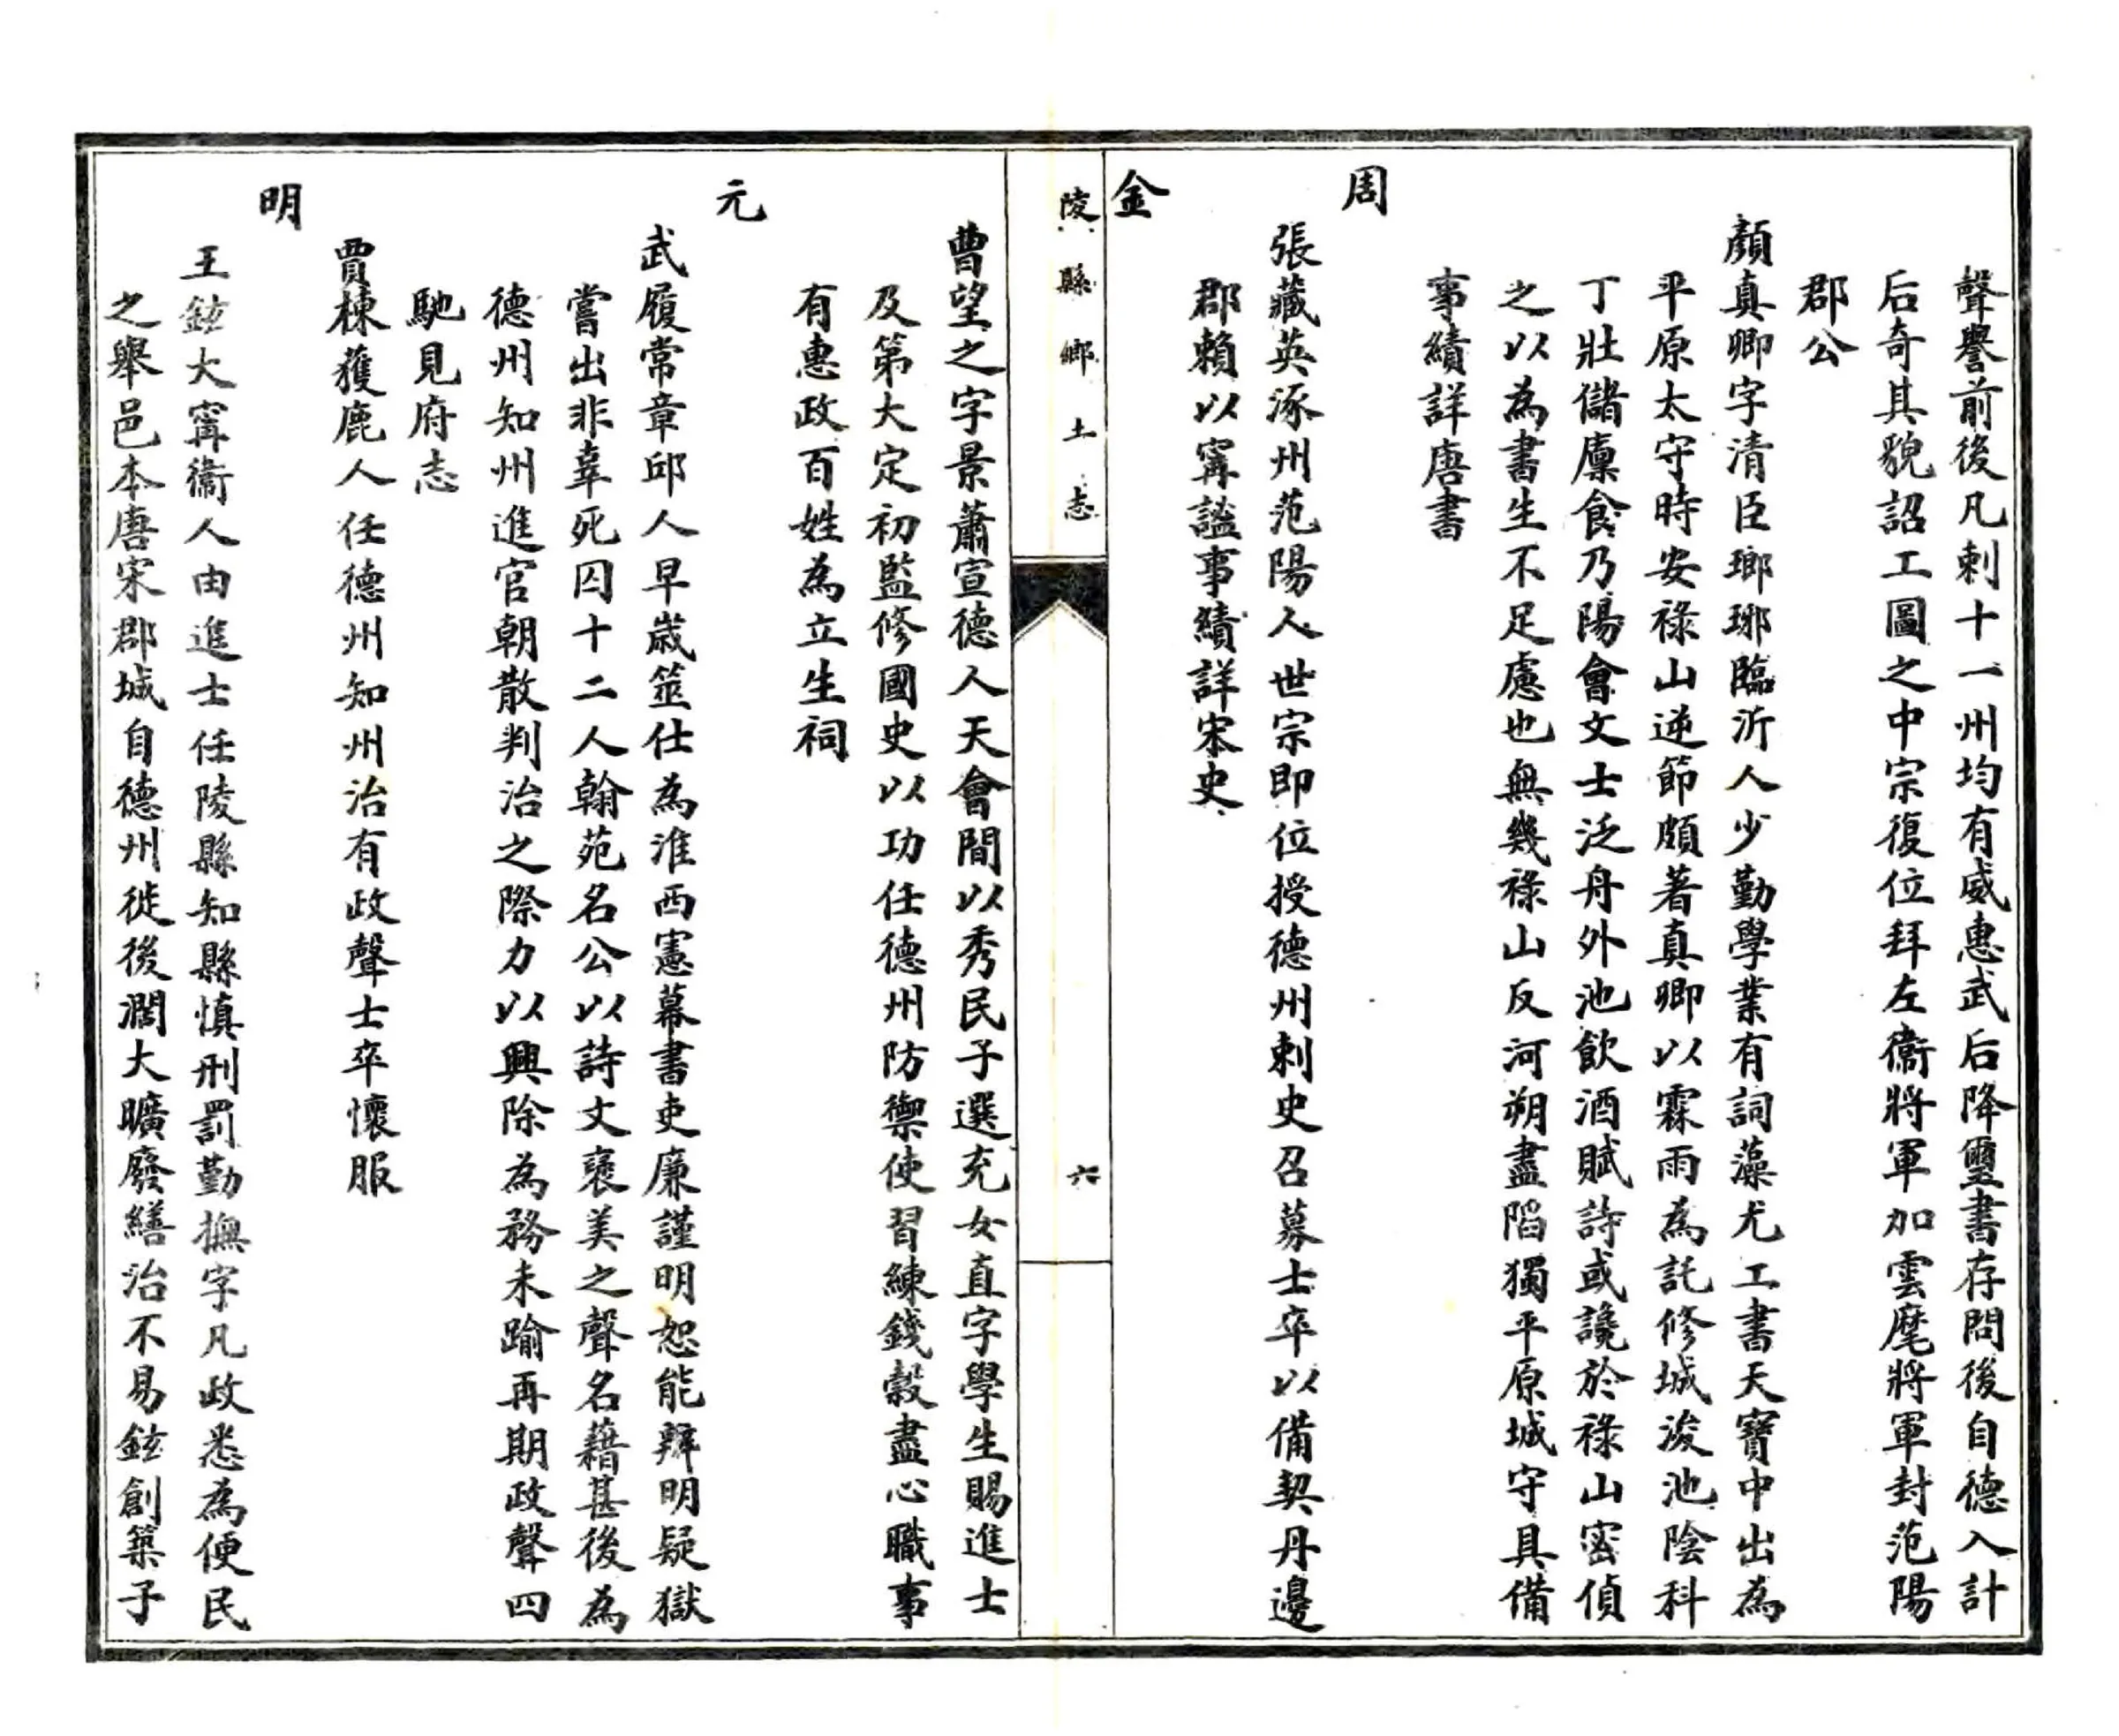 聲譽前後凡刺十一州均有威惠武后降璽書存問後自德入計
后奇其貌詔工圖之中宗復位拜左衞將軍加雲麾將軍封范陽
郡公
顏真卿字清臣瑯琊臨沂人少勤學業有詞藻尤工書天寶中出為
平原太守時安祿山逆節頗著真卿以霖雨為託修城浚池陰科
丁壯儲廩食乃陽會文士泛舟外池飲酒賦詩或讒於祿山密偵
之以為書生不足慮也無幾祿山反河朔盡陷獨平原城守具備
事績詳唐書
周
張藏英涿州范陽人世宗即位授德州刺史召募士卒以備契丹邊
郡賴以寗謐事績詳宋史
金
陵縣鄉土志
六
曹望之字景蕭宣德人天會間以秀民子選充女直字學生賜進士
及第大定初監修國史以功任德州防禦使習練錢穀盡心職事
有惠政百姓為立生祠
元
武履常章邱人早歲筮仕為淮西憲幕書吏廉謹明恕能辨明疑獄
嘗出非辜死囚十二人翰苑名公以詩文褒美之聲名藉甚後為
德州知州進官朝散判治之際力以興除為務未踰再期政聲四
馳見府志
賈棟獲鹿人任德州知州治有政聲士卒懷服
明
王鉉大寗衞人由進士任陵縣知縣慎刑罰勤撫字凡政悉為便民
之舉邑本唐宋郡城自德州徙後濶大曠廢繕治不易鉉創築子